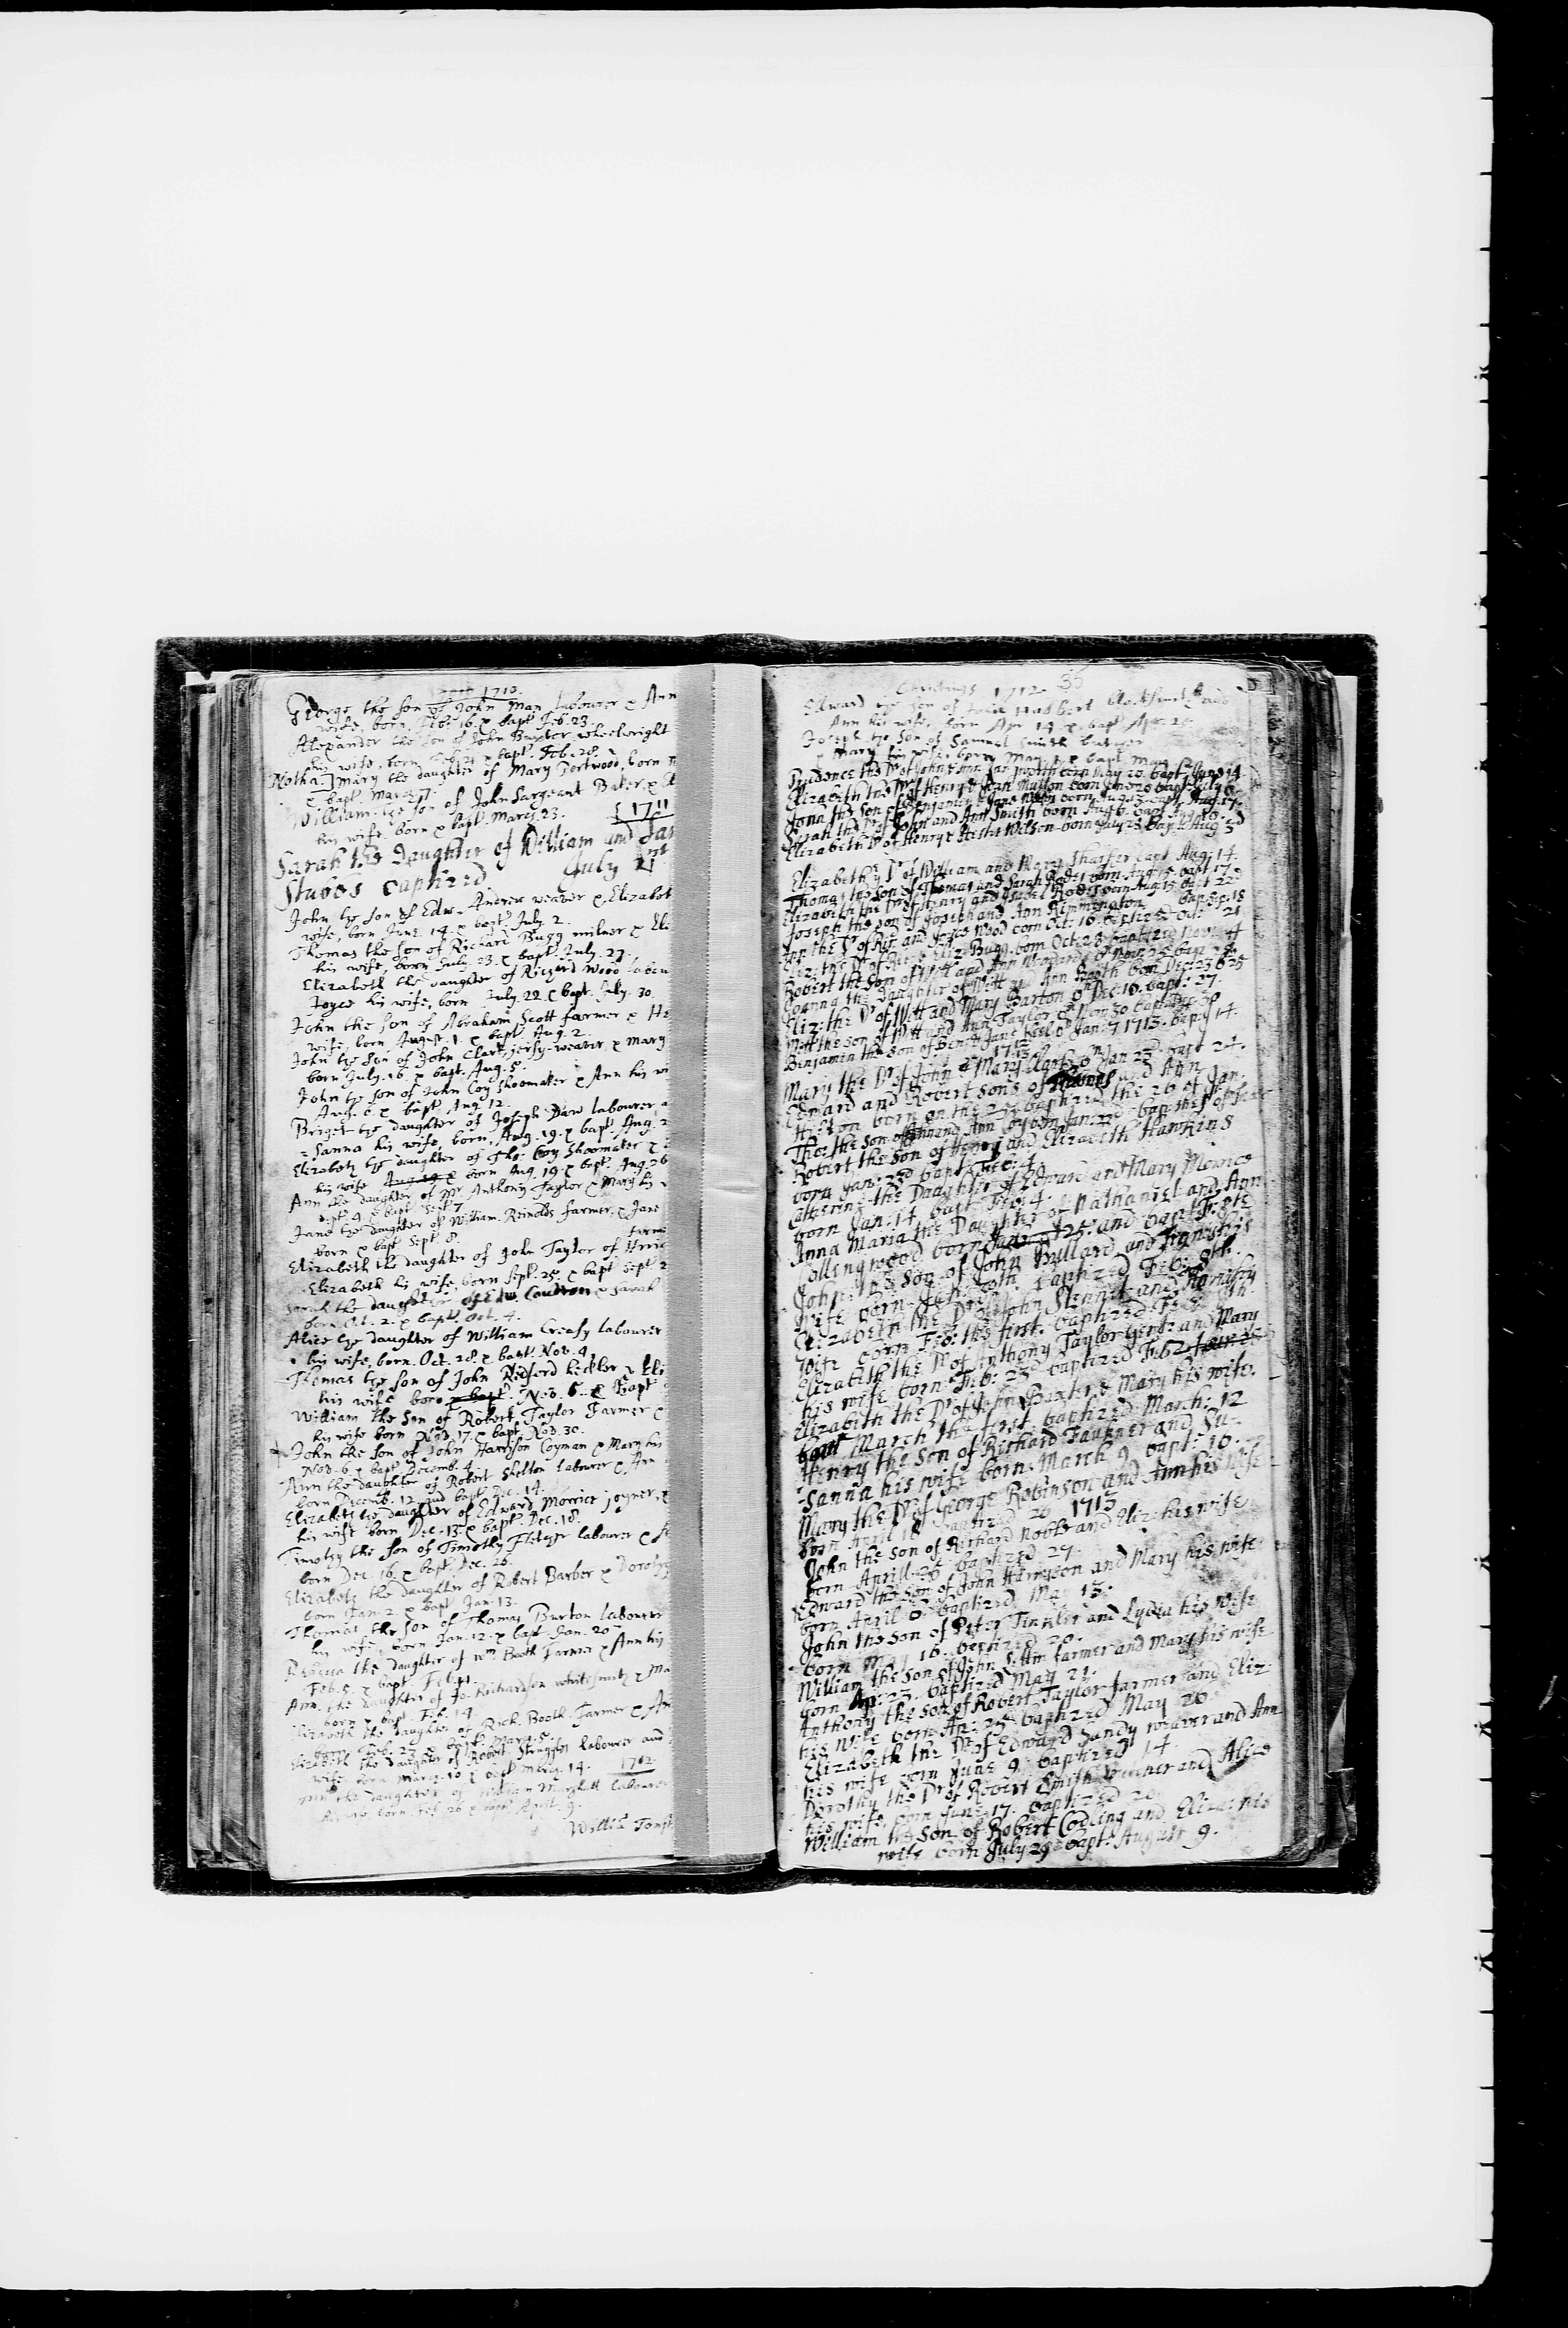 1710.
George the son of John Man labourer & Ann
wife, born, Feb. 16. & bapt Feb. 23
Alexander the son of John Baxter wheelwright
his wife, born Feb. 24 & bapt. Feb. 28.
Notha] Mary the daughter of Mary Portwood, born
& bapt. March
William the son of John Sargeant Baker &
his wife born & bapt. March. 23. 1711
Sarah the Daughter of William and Jan
Stubes baptized July
John the son of Edw. Andrew weaver & Elizabet
wife, born June. 14. & bapt July. 2.
Thomas the son of Richard Bugg milner & Eli
his wife, born July. 23. & bapt. July. 27.
Elizabeth the daughter of Richard Wood labou
Joyce his wife, born July. 22. & bapt. July. 30
John the son of Abraham Scott farmer & He
wife, born August. 1. & bapt. Aug. 2.
John the son of John Clark, jersy-weaver, & mary
born July. 16. & bapt. Aug. 5.
John the son of John Coy Shoomaker & Ann his wi
Aug. 6. & bapt. Aug. 12.
Briget the daughter of Joseph Daw labourer,
= sanna his wife, born, Aug. 19. & bapt. Aug. 2
Elizabeth the daughter of Tho: Coy Shoomaker &
his wife Aug. 19 & born Aug. 19. & bapt. Aug. 26
Ann the daughter of Mr Anthony Taylor & Mary his
Sept. 4. & bapt Sept. 7
Jane the daughter of William Reinolds farmer, & Jane
born & bapt Sept. 8.
Elizabeth the daughter of John Taylor of
Elizabeth his wife, born Sept. 25. & bapt Sept 2
Sarah the daughter of Edw. Caudron & Sarah
born Oct. 2. & bapt. Oct. 4.
Alice the daughter of William Creasy labourer
his wife, born. Oct. 28. & bapt. Nov. 4
Thomas the son of John Redford heckler & Eli
his wife born & bapt. Nov. 6. & Bapt
William the son of Robert Taylor Farmer &
his wife born Nov. 17. & bapt. Nov. 30.
John the son of John Harrison Coyman & Mary his
Nov. 6. & bapt Decemb. 4.
Ann the daughter of Robert Shelton labourer & Ann
born Decemb. 12. and bapt Dec. 14.
Elizabeth the daughter of Edward Morrice joyner, &
his wife born Dec. 13. & bapt. Dec. 18.
Timothy the son of Timothy Fletcher labourer &
born Dec 16. & bapt. Dec. 26.
Elizabeth the daughter of Robert Barber & Dorothy
born Jan. 2. & bapt Jan. 13.
Thomas the son of Thomas Burton labourer
his wife, born Jan. 12. & bapt Jan. 20
Rebecca the daughter of Wm Booth Farmer & Ann his
Feb. 5. & bapt. Feb.
Ann the daughter of Jo: Richardson whitesmith & Ma
born & bapt. Feb. 14.
Elizabeth the daughter of Rich. Booth Farmer & An
born Feb. 23. & bapt. March. 5.
Elizabeth the daughter of Robert labourer and
wife born March. 10 & bapt March. 14. 1712
the daughter of William Marshall labourer
born. Feb. 26 & bapt. April. 9.
William
Christnings 1712 35
Edward the son of John
Ann his wife, born Apr 14 & bapt Apr. 20
Joseph the son of Samuel Smith
& Mary his wife, born May & bapt May
Prudence the Dr of John & Ann born May 20. bapt. June 14
Elizabeth the Dr of Henry & Jean Mutton born bapt July 6
Jona the son of Benjamin & Jane born bapt. Aug. 17.
Sarah the Dr of John and Ann Smith born Aug 6. bapt. Aug. 10.
Elizabeth Dr of Henry & Hester Wilson born July 23 bapt. Aug.
Elizabeth ye Dr of William and Mary Tharfer bapt Aug. 14.
Thomas the son of Thomas and Sarah born. Aug 15. bapt 17
Elizabeth the Dr of Henry and born Aug 15 bapt 22.
Joseph the son of Joseph and Ann Rimmington bap. Sep. 18
Ann the Dr of Ric. and Joyce Wood born Oct. 16. baptized Oct. 21
Eliz: the Dr of Ric. & Eliz: Bugg. born Oct. 28 baptized Novem 4
Robert the son of Will and Ann Woodard Novem 25 bapt 27
Joanna the Daughter of Will and Ann Booth born Dec. 23 & 25
Eliz: the Dr of Will and Mary Barton Dec. 18. bapt. 27.
Will the son of Will and Ann Taylor bapt. Dec. 30
Benjamin the son of Ben. & Jane Jan. 7 1713. bap. 14.
Mary the Dr of John & Mary Clark Jan 22. bapt 24.
Edward and Robert sons of and Ann
Hilton born on the 25. baptized the 26 of Jan.
Tho: the son of John and Ann Coy born Jan. 22 bap. the of
Robert the son of Henry and Elizabeth Hawkins
born Jan: 23d bapt. Feb: 4
Catherine the Daughter of Edward and Mary Morrice
born Jan: 14 bapt. Feb: 4.
Anna Maria the Daughter of Nathaniel and Ann
Collingwood born and bapt
John the son of John Bullard and his
wife born Jan: 20th. baptized Feb: 8th.
Elizabeth the Dr of John Stennet and
wife born Feb: the first. baptized
Elizabeth the Dr of Anthony Taylor Gent: and Mary
his wife born Feb: 23d baptized
Elizabeth the Dr of John Baxter & Mary his wife.
born March the first. baptized March: 12
Henry the son of Richard Faukner and Su-
-sanna his wife born March 9 bapt: 10.
Mary the Dr of George Robinson and Ann his wife
born April 18 baptized 20 1713
John the son of Richard Noble and Eliz: his wife.
born Aprill 26 baptized 29.
Edward the son of John Harrison and Mary his wife
born April 6. baptized May 15.
John the son of Peter Tinkler and Lydia his wife
born May 16. baptized 20.
William the son of John farmer and Mary his wife
born Apr: 23. baptized May 21.
Anthony the son of Robert Taylor farmer and Eliz:
his wife born Ap: 25 baptized May 26.
Elizabeth the Dr of Edward Handy weaver and Ann
his wife born June 9. baptized 14.
Dorothy the Dr of Robert Smith and Alice
his wife, born June 17. baptized 20.
William the son of Robert Codling and Eliza: his
wife born July 29 bapt: August 9.